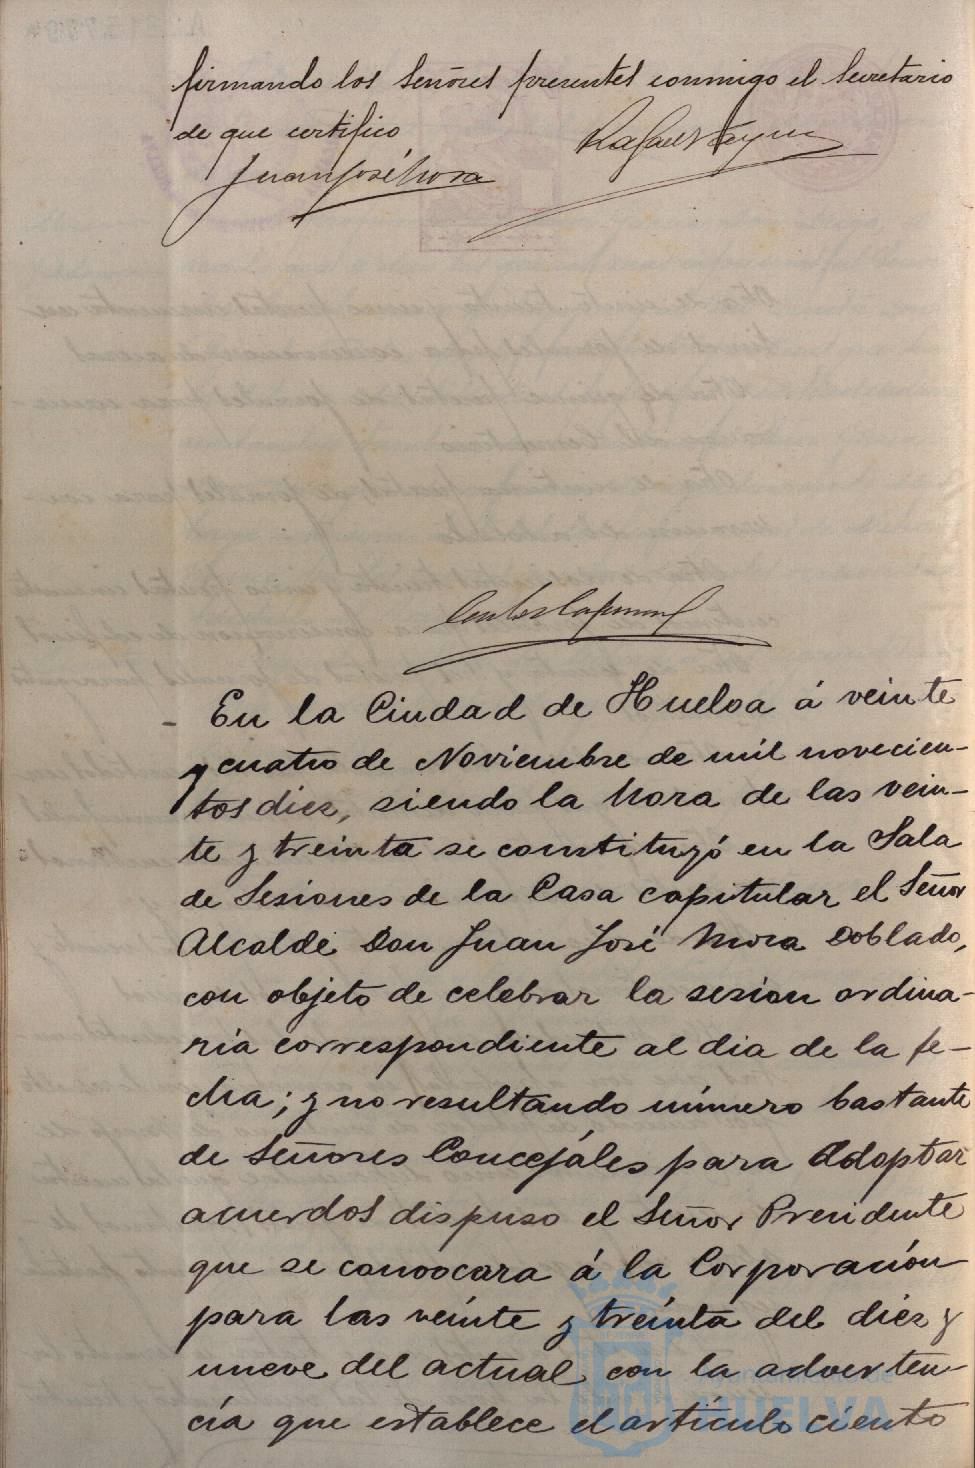 firmando los Señores presentes conmigo el Secretario
de que certifico
Juan José Mora
En la Ciudad de Huelva á veinte
y cuatro de Noviembre de mil novecien-
tos diez, siendo la hora de las vein-
te y treinta se constituyó en la Sala
de Sesiones de la Casa capitular el Señor
Alcalde Don Juan José Mora Doblado,
con objeto de celebrar la sesion ordina-
ria correspondiente al dia de la fe-
cha; y no resultando número bastante
de Señores Concejáles para Adoptar
acuerdos dispuso el Señor Presidente
que se convocara á la Corporación
para las veinte y treinta del diez y
nueve del actual con la adverten
cia que establece el artículo ciento
HUELVA